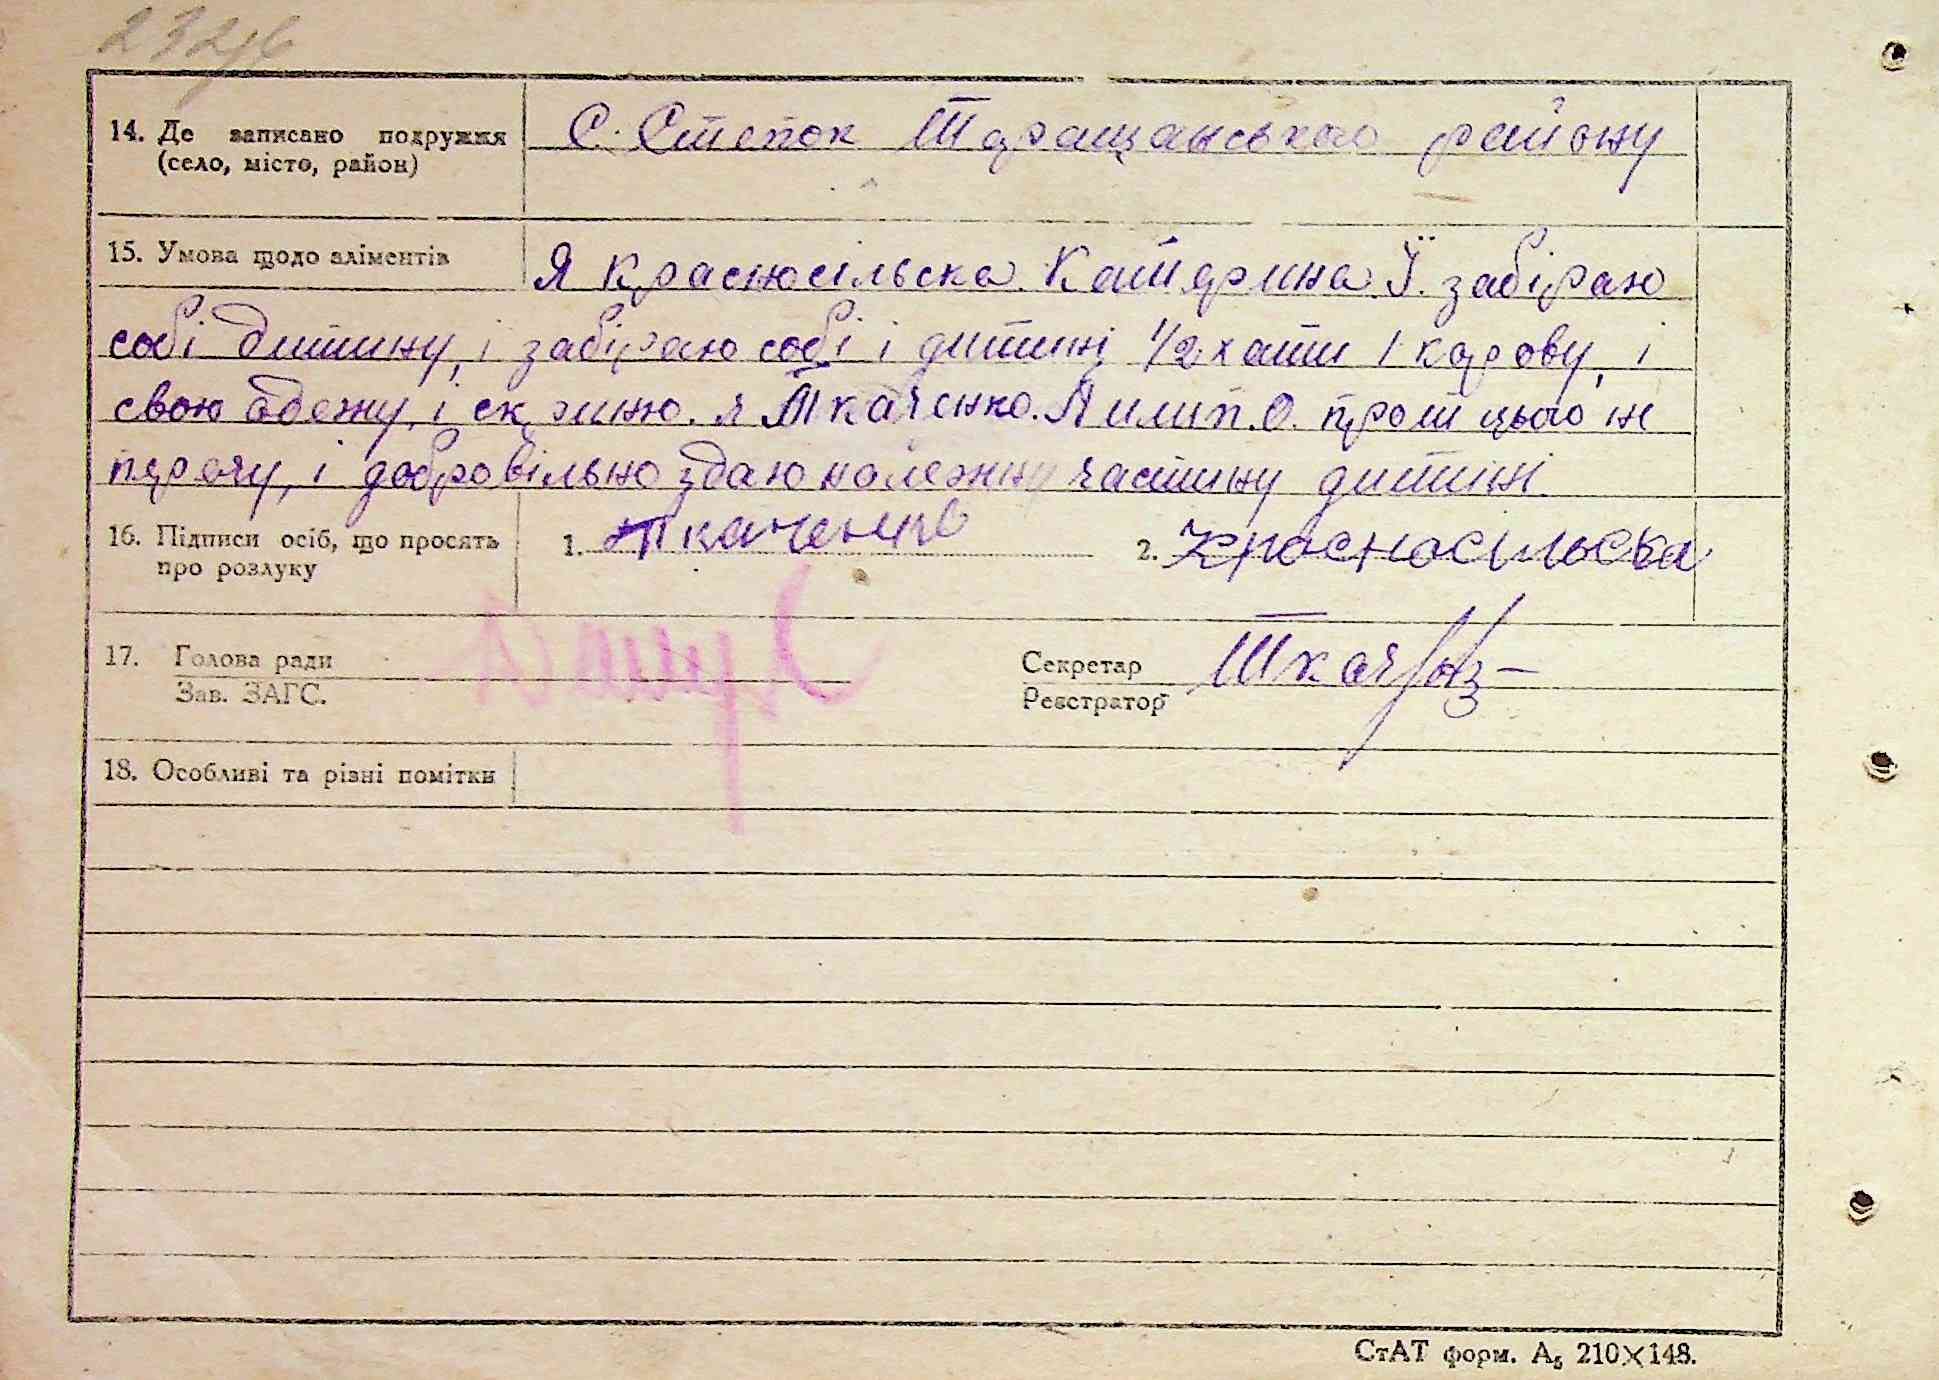 14. Де записано подружжя
(село, місто, район)
С. Степок Таращанського району
15. Умова щодо аліментів
Я Красносільска Катерина Ї. забіраю
собі дитину, і забіраю собі і дитині 1/2 хати 1 карову, і
свою одежу, і скриню. я Ткаченко. Пилип. О. проти цього не
перочу, і добровільно здаю належну частину дитині.
16. Підписи осіб, що просять
про розлуку
1. Ткаченко 2. Красносільска
17. Голова ради
Зав. ЗАГС.
Секретар
Реєстратор
18. Особливі та різні помітки
СтАТ форм. А₅ 210×148.